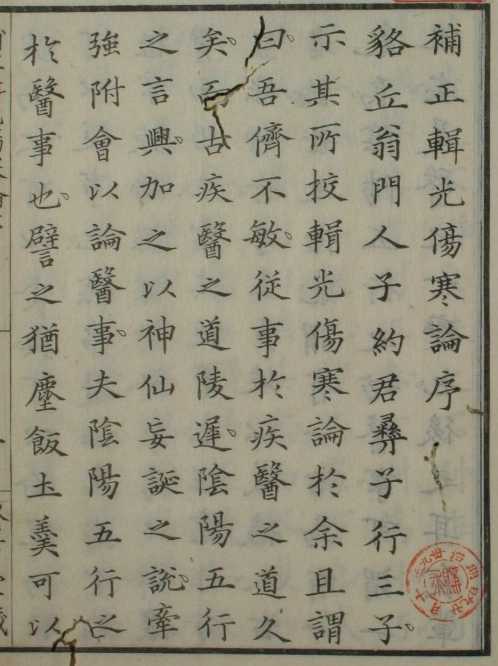 補正輯光傷寒論序
貉丘翁門人子約君彝子行三子。
示其所挍輯光傷寒論於余且謂
曰。吾儕不敏。従事於疾醫之道久
矣。而古疾醫之道陵遲。陰陽五行
之言興。加之以神仙妄誕之說。牽
強附會以論醫事。夫陰陽五行之
於醫事也。譬之猶塵飯土羹可以